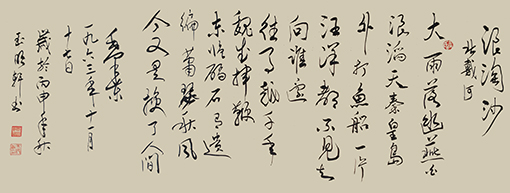 浪淘沙
北戴河
大雨落幽燕白
浪滔天秦皇岛
外打魚船一片
汪洋都不见知
向谁边
往事越千年
魏武挥鞭
东临碣石有遗
编萧瑟秋风
今又是换了人间
毛泽东
一九六三年十一月
十七日
岁於丙申年秋